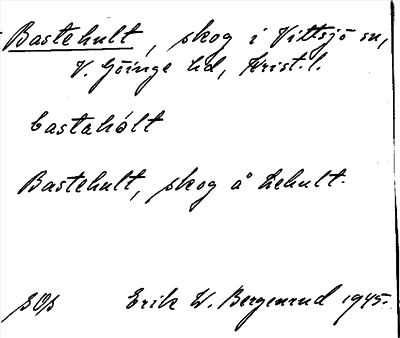 Bastehult, skog i Vittsjö sn,
V. Göinge hd, Krist. l.
bastahólt
Bastehult, skog å Lehult.
SOS Erik W. Bergenrud 1945.